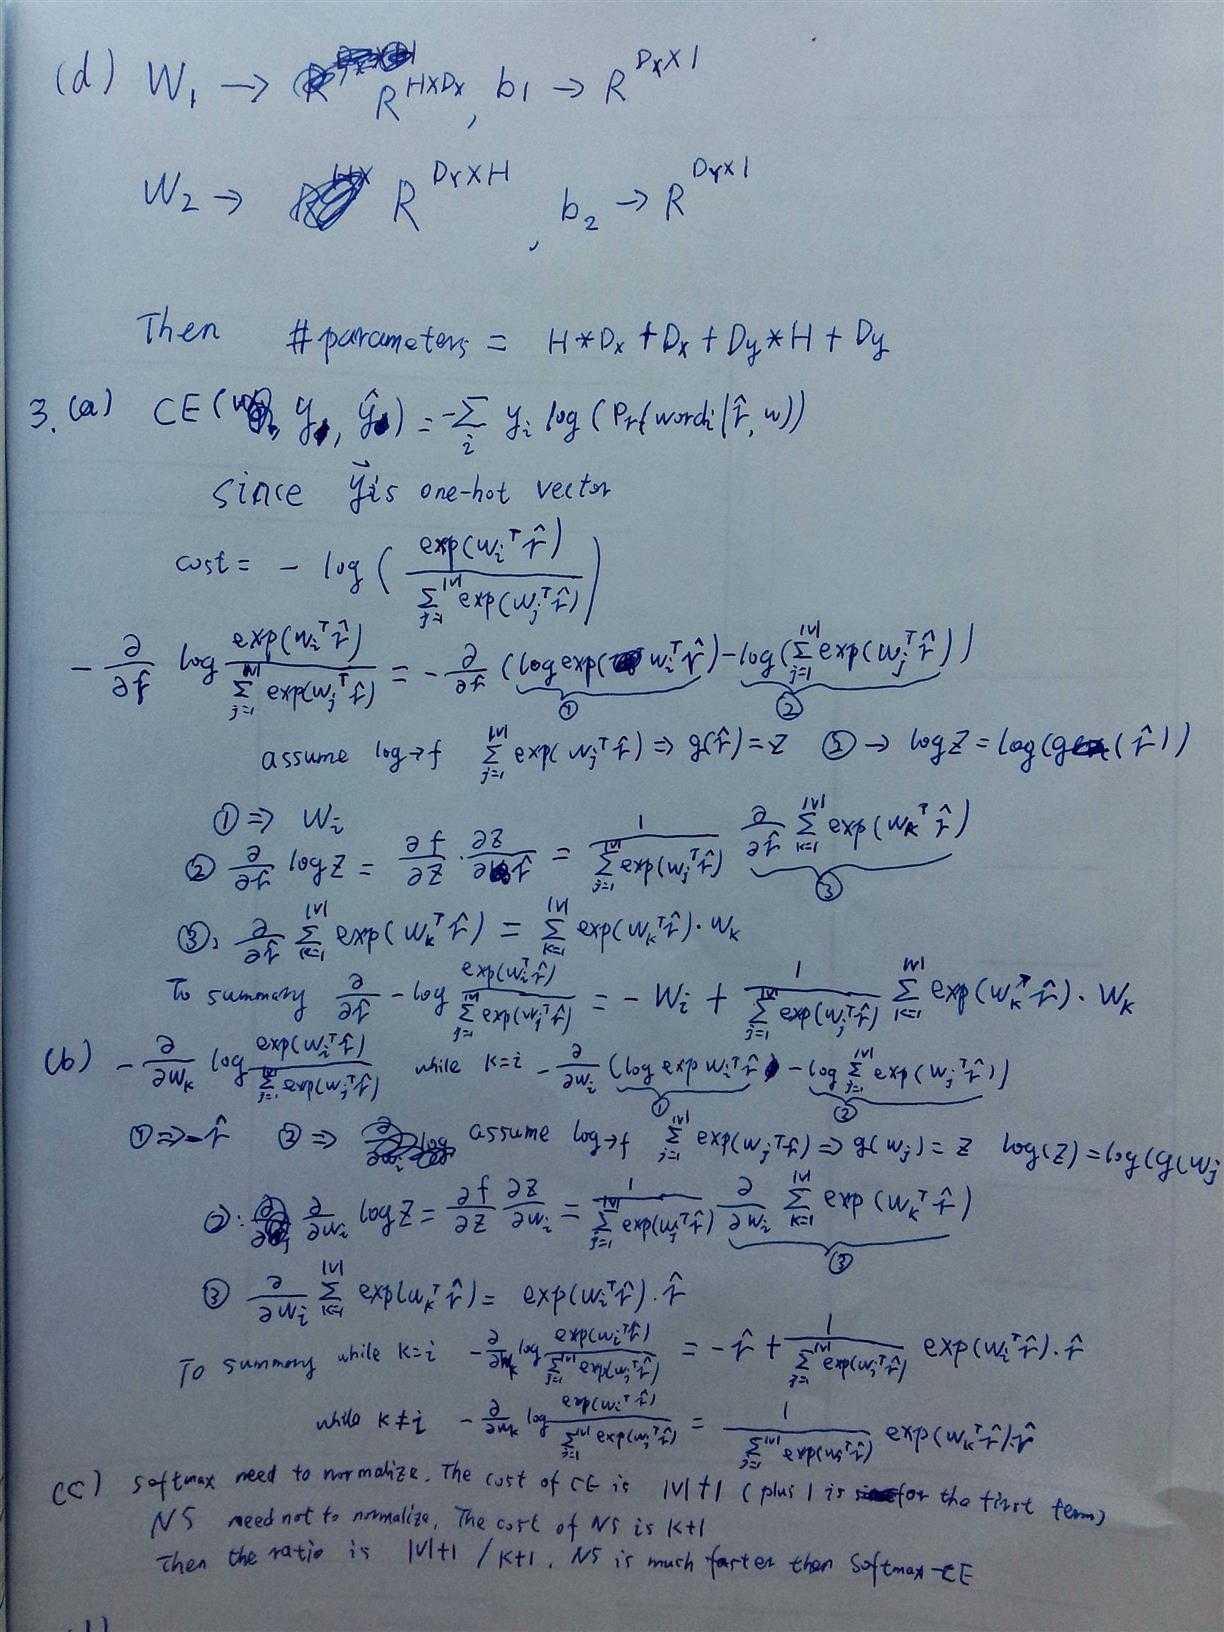 (d) W₁ → R^{H×Dx}, b1 → R^{Dx×1}
W₂ → R^{Dy×H}, b₂ → R^{Dy×1}
Then #parameters = H*Dx + Dx + Dy*H + Dy
3. (a) CE( y, ŷ ) = -∑_i y_i log (Pr(word_i | r̂, w))
since y⃗ is one-hot vector
cost = - log ( exp(w_i^T r̂) / ∑_{j=1}^{|V|} exp(w_j^T r̂) )
- ∂/∂r̂ log exp(w_i^T r̂) / ∑_{j=1}^{|V|} exp(w_j^T r̂) = - ∂/∂r̂ (log exp( w_i^T r̂) - log(∑_{j=1}^{|V|} exp(w_j^T r̂)) )
① ②
assume log → f ∑_{j=1}^{|V|} exp(w_j^T r̂) ⇒ g(r̂) = z ② → log z = log(g(r̂))
① ⇒ w_i
② ∂/∂r̂ log z = ∂f/∂z · ∂z/∂r̂ = 1 / ∑_{j=1}^{|V|} exp(w_j^T r̂) ∂/∂r̂ ∑_{k=1}^{|V|} exp(w_k^T r̂)
③
③: ∂/∂r̂ ∑_{k=1}^{|V|} exp(w_k^T r̂) = ∑_{k=1}^{|V|} exp(w_k^T r̂) · w_k
To summary ∂/∂r̂ -log exp(w_i^T r̂) / ∑_{j=1}^{|V|} exp(w_j^T r̂) = - w_i + 1 / ∑_{j=1}^{|V|} exp(w_j^T r̂) ∑_{k=1}^{|V|} exp(w_k^T r̂) · w_k
(b) - ∂/∂w_k log exp(w_i^T r̂) / ∑_{j=1}^{|V|} exp(w_j^T r̂) while k=i - ∂/∂w_i (log exp w_i^T r̂ - log ∑_{j=1}^{|V|} exp(w_j^T r̂))
① ②
① ⇒ -r̂ ② ⇒ assume log → f ∑_{j=1}^{|V|} exp(w_j^T r̂) ⇒ g(w_j) = z log(z) = log(g(w_j
②: ∂/∂w_i log z = ∂f/∂z ∂z/∂w_i = 1 / ∑_{j=1}^{|V|} exp(w_j^T r̂) ∂/∂w_i ∑_{k=1}^{|V|} exp(w_k^T r̂)
③
③ ∂/∂w_i ∑_{k=1}^{|V|} exp(w_k^T r̂) = exp(w_i^T r̂) · r̂
To summary while k=i - ∂/∂w_k log exp(w_i^T r̂) / ∑_{j=1}^{|V|} exp(w_j^T r̂) = -r̂ + 1 / ∑_{j=1}^{|V|} exp(w_j^T r̂) exp(w_i^T r̂) · r̂
while k≠i - ∂/∂w_k log exp(w_i^T r̂) / ∑_{j=1}^{|V|} exp(w_j^T r̂) = 1 / ∑_{j=1}^{|V|} exp(w_j^T r̂) exp(w_k^T r̂) · r̂
(c) Softmax need to normalize. The cost of CE is |V|+1 (plus 1 is for the first term)
NS need not to normalize. The cost of NS is k+1
Then the ratio is |V|+1 / k+1. NS is much faster then Softmax-CE